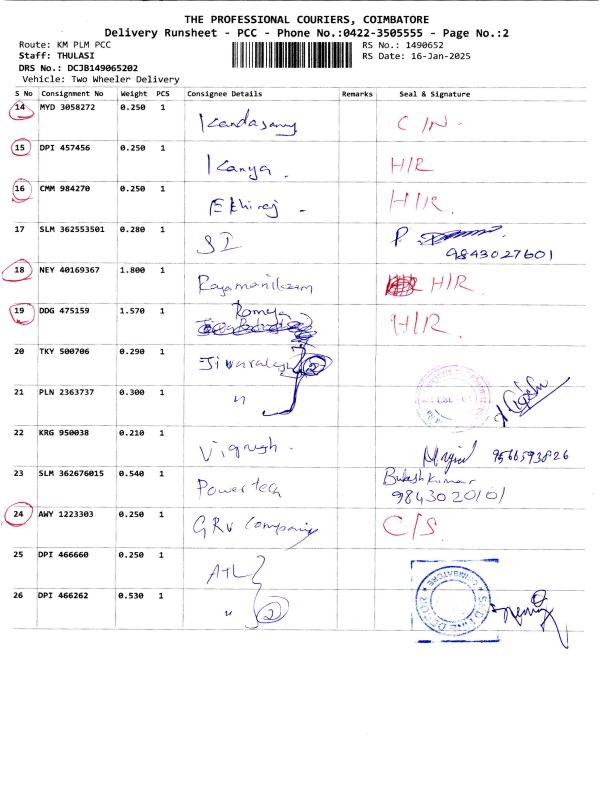 THE PROFESSIONAL COURIERS, COIMBATORE
Delivery Runsheet - PCC - Phone No.:0422-3505555 - Page No.:2
Route: KM PLM PCC
RS No.: 1490652
Staff: THULASI
RS Date: 16-Jan-2025
DRS No.: DCJB149065202
Vehicle: Two Wheeler Delivery
S No Consignment No Weight PCS Consignee Details Remarks Seal & Signature
14 MYD 3058272 0.250 1 Kandasamy C/N.
15 DPI 457456 0.250 1 Kanya. H/R
16 CMM 984270 0.250 1 H/R.
17 SLM 362553501 0.280 1 SI P.
9843027601
18 NEY 40169367 1.800 1 Rayamanikzam H/R.
19 DDG 475159 1.570 1 Romya H/R.
20 TKY 500706 0.290 1 2
21 PLN 2363737 0.300 1 "
22 KRG 950038 0.210 1 Vignesh. 9566593826
23 SLM 362676015 0.540 1 Powertech Bukesh Kumar
9843020101
24 AWY 1223303 0.250 1 GRV Company C/S.
25 DPI 466660 0.250 1 ATL
26 DPI 466262 0.530 1 " 2
COIMBATORE